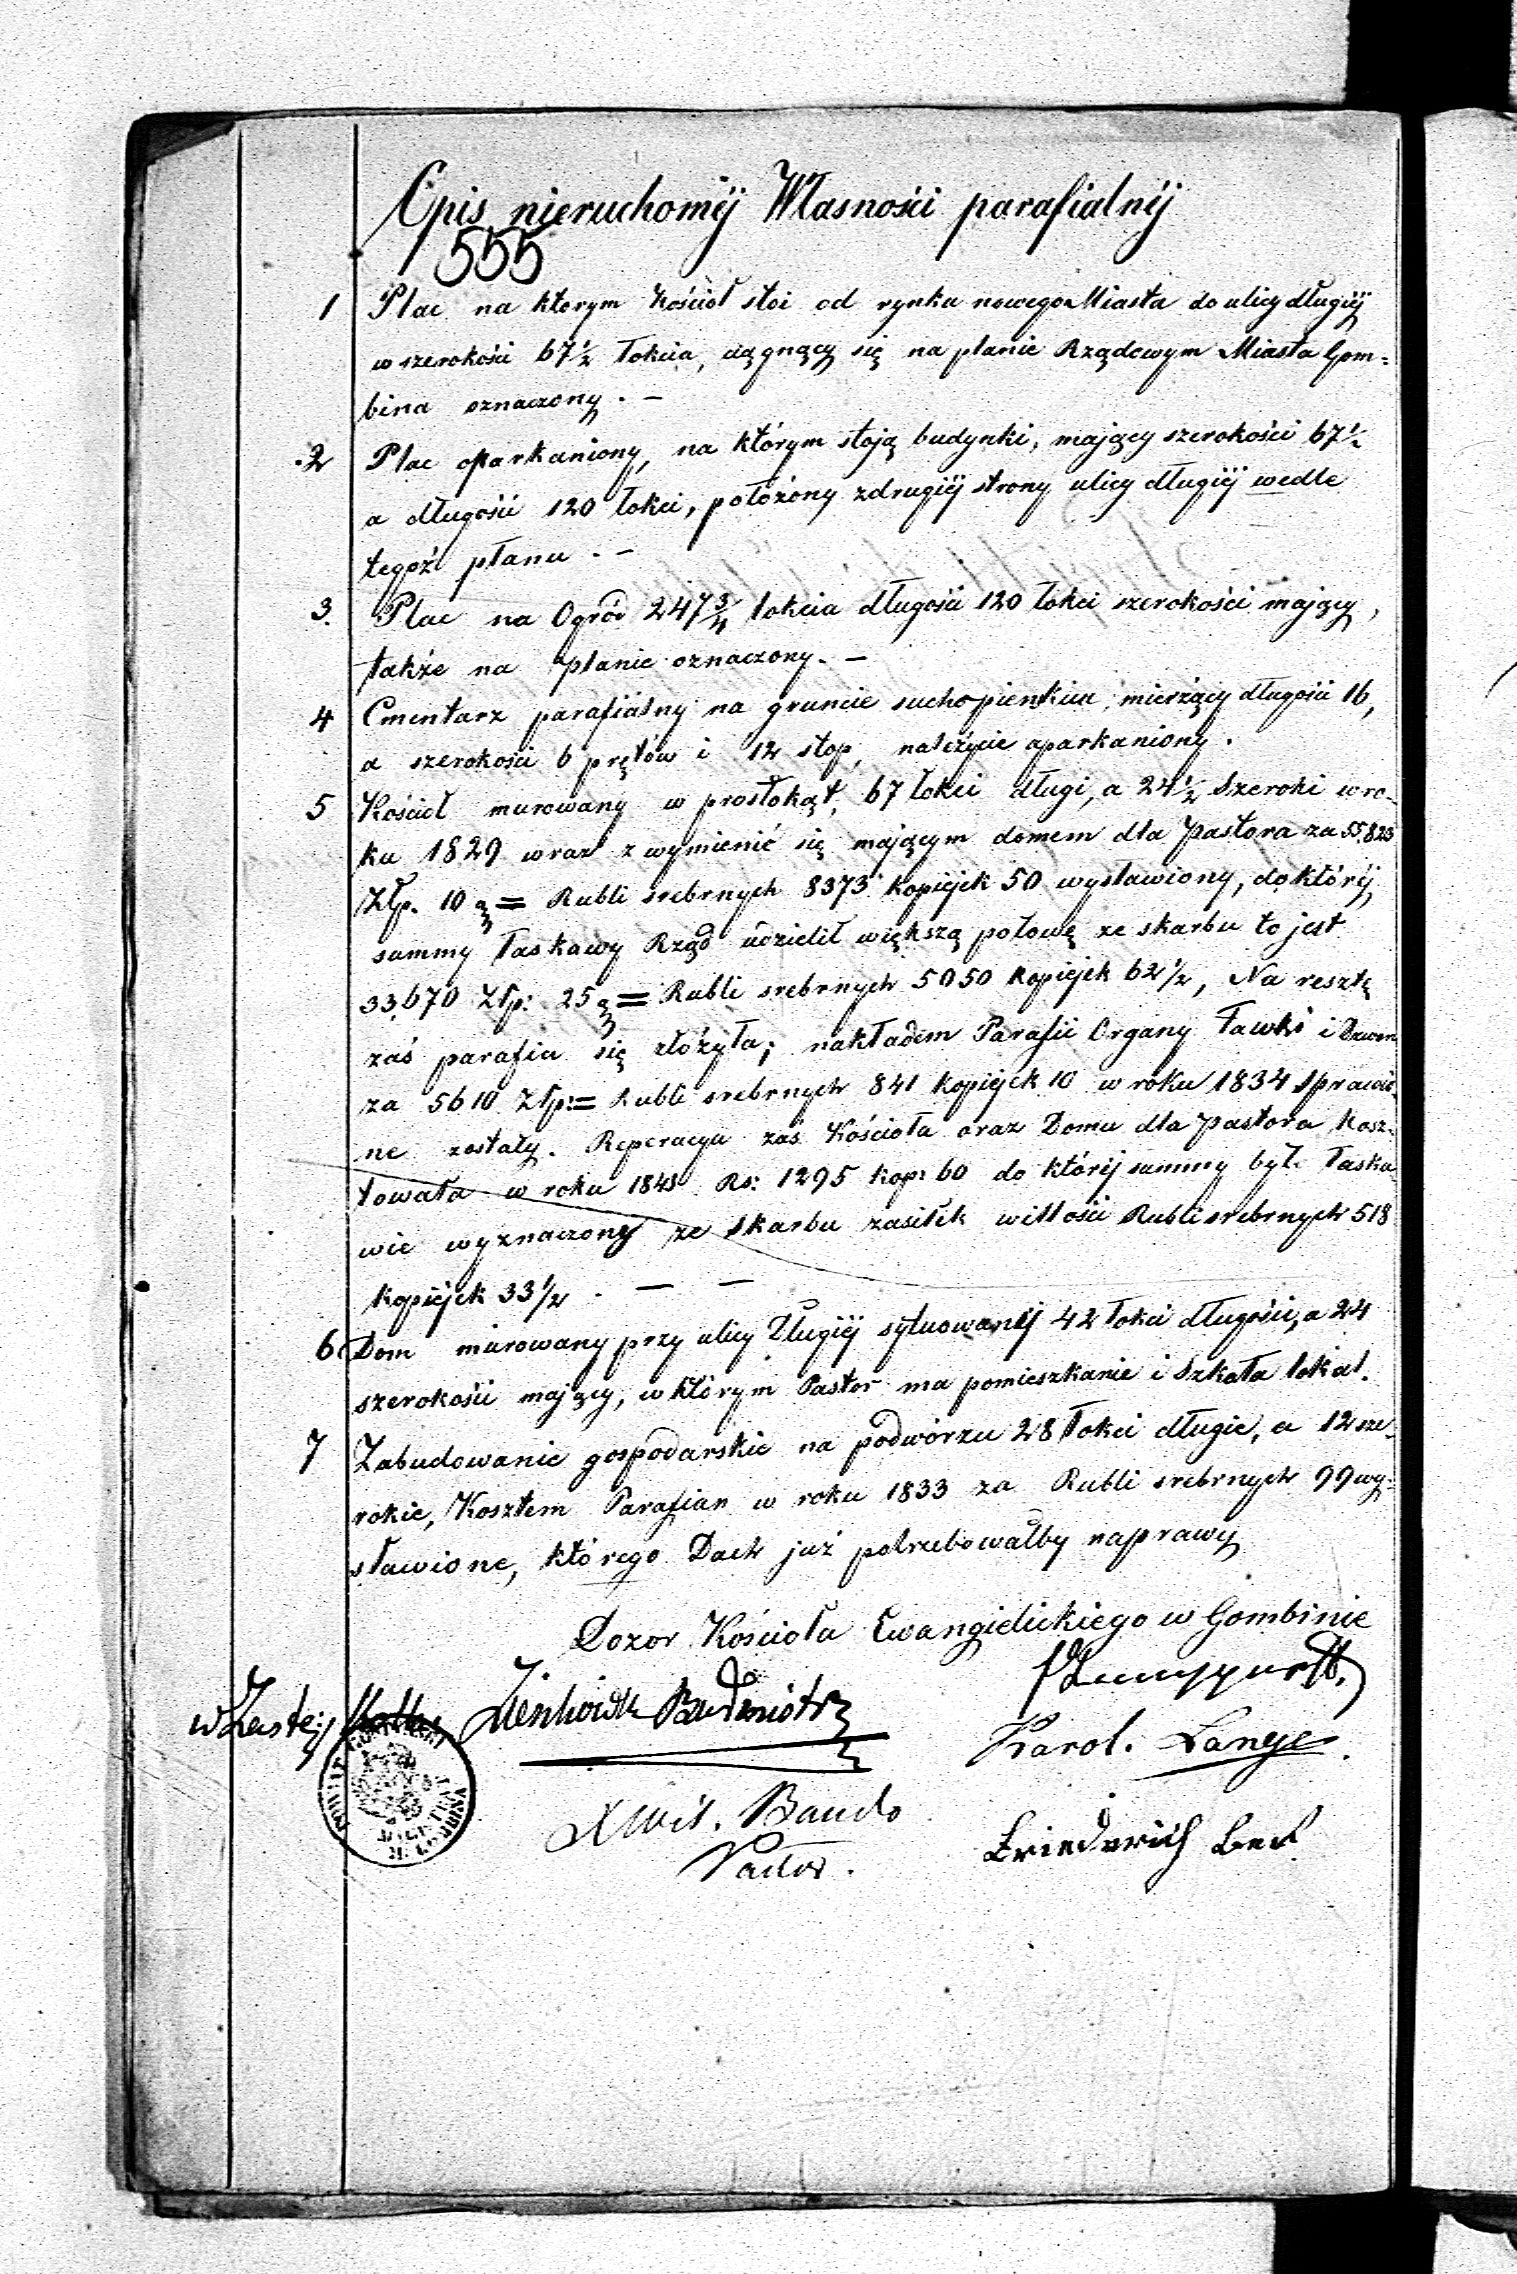 Opis nieruchoméj Własności parafialnéj
555
1 Plac na ktorym Kościoł stoi od rynku nowego Miasta do ulicy długiéj
w szerokości 67½ łokcia, ciągnący się na planie Rządowym Miasta Gom=
bina oznaczony. —
2 Plac oparkaniony, na którym stoją budynki, mający szerokości 67½
a długość 120 łokci, położony z drugiéj strony ulicy długiéj wedle
tegoż planu. —
3. Plac na Ogród 247¾ łokcia długości 120 łokci szerokości mający,
także na planie oznaczony. —
4 Cmentarz parafialny na gruncie suchopienkiu, mierzący długości 16,
a szerokości 6 prętów i 12 stop, należycie oparkaniony.
5 Kościeł murowany w prostokąt, 67 łokci długi, a 24½ szeroki w ro-
ku 1829 wraz z wymienić się mającym domem dla Pastora za 55,823
Złp. 10 g = Rubli srebrnych 8373 Kopiejek 50 wystawiony, do któréj
summy łaskawy Rząd udzielił większą połowę ze skarbu to jest
33,670 Złp: 25 g = Rubli srebrnych 5050 Kopiejek 62½, Na resztę
zaś parafia się złożyła; nakładem Parafii Organy Ławki i Dzwon
za 5610 Złp: = Rubli srebrnych 841 Kopiejek 10 w roku 1834 sprawio-
ne zostały. Reperacya zaś Kościoła oraz Domu dla Pastora Kosz-
towała w roku Rs: 1295 kop: 60 do któréj summy był łaska
wie wyznaczony ze skarbu zasiłek willości Rubli srebrnych 518
kopiéjek 33½. — —
6 Dom murowany przy ulicy Długiéj sytuowanéj 42 łokci długości, a 24
szerokości mający, w którym Pastor ma pomieszkanie i Szkoła lokal.
7 Zabudowanie gospodarskie na podwórzu 28 łokci długie, a 12 sze-
rokie, Kosztem Parafian w roku 1833 za Rubli srebrnych 99 wy=
stawione, którego Dach już potrzebowałby naprawy
Dozor Kościoła Ewangielickiego w Gombinie
w Zastę:
Karol. Lange
Pastor.
Friederich